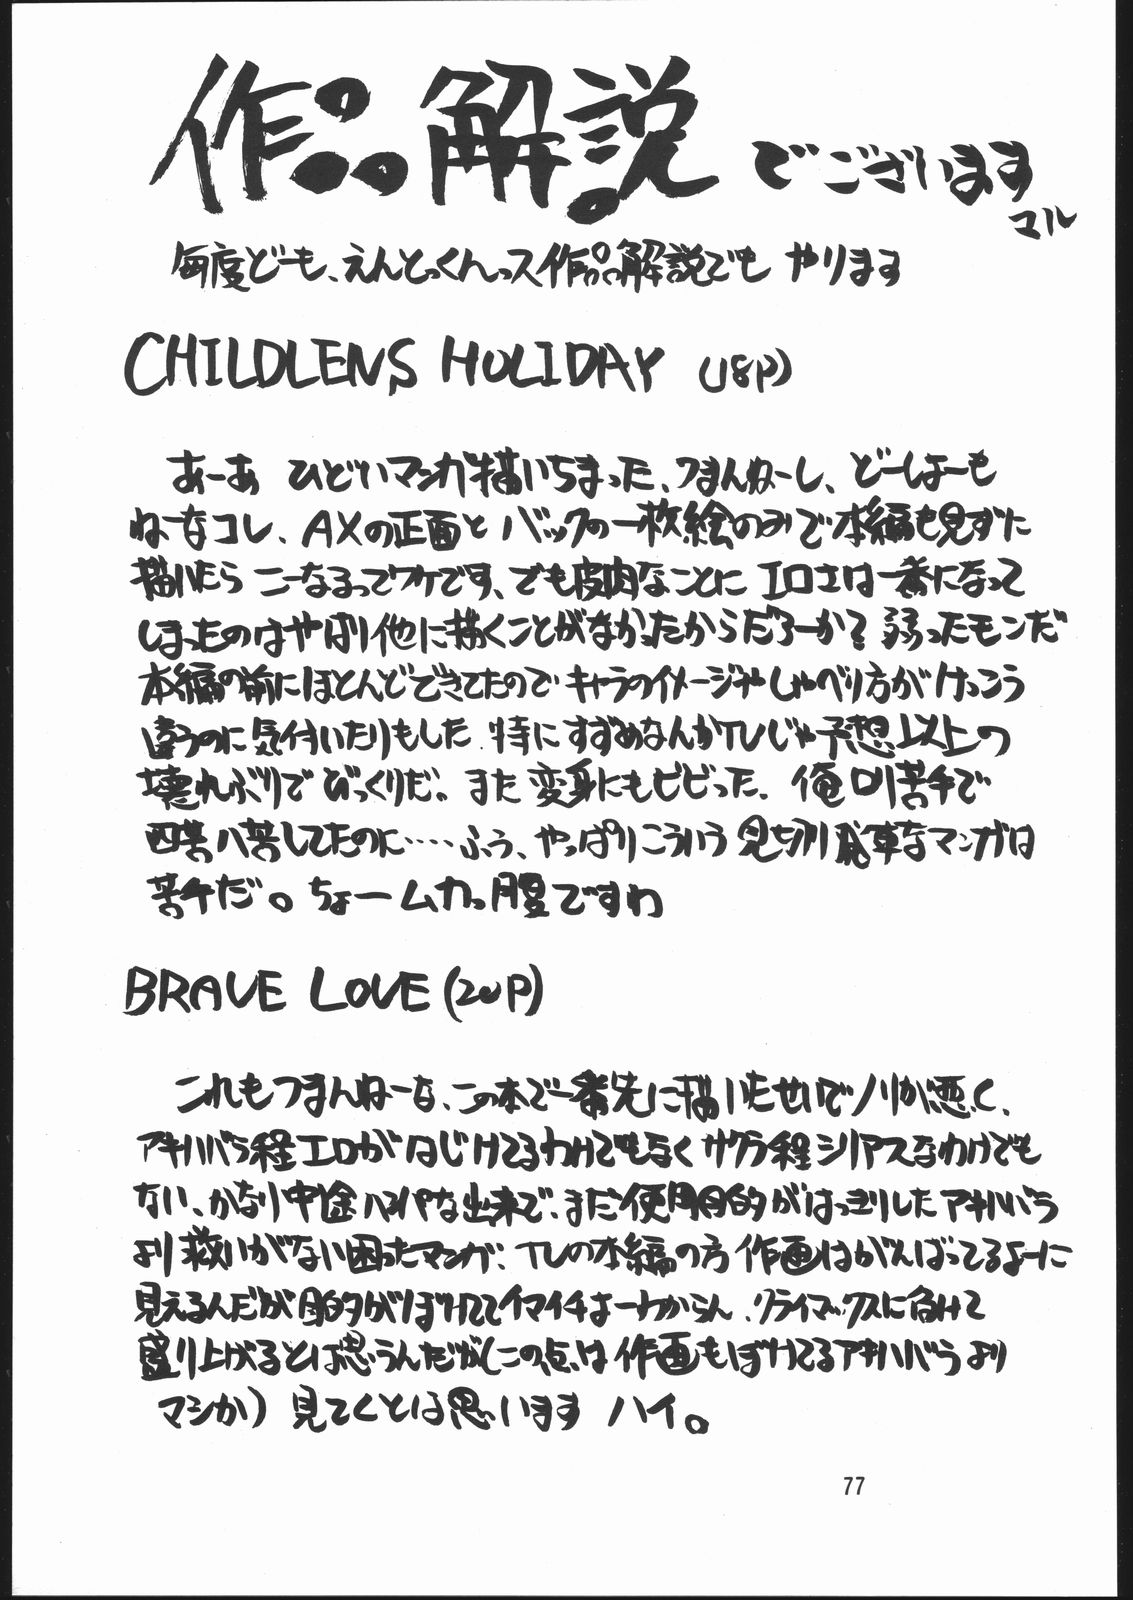 作品解説でございます
マル
毎度どーも、えんとっくんっス作品解説でも やります
CHILDLENS HOLIDAY (18P)
あーあ ひどいマンガ描いちまった、つまんねーし、どーしよーも
ねーなコレ、AXの正面とバックの一枚絵のみで本編も見ずに
描いたら こーなるってワケです、でも皮肉なことに エロさは一番になって
しまったのはやはり他に描くことがなかったからだろーか? 弱ったモンだ
本編の前にほとんどできてたので キャラのイメージやしゃべり方がけっこう
違うのに気付いたりもした 特にすずめなんかTVじゃ予想以上の
壊れぶりでびっくりだ。また 変身にもビビった、俺ロリ苦手で
四苦八苦してたのに‥‥ふう、やっぱりこういう 見切り発車なマンガは
苦手だ。ちょームカっ腹ですわ
BRAVE LOVE (20P)
これもつまんねーな、この本で一番先に描いたせいでノリが悪く、
アキハバラ程エロがはじけてるわけでもなくサクラ程シリアスなわけでも
ない、かなり中途ハンパな出来で、まだ使用目的がはっきりしたアキハバラ
より救いがない困ったマンガ、TVの本編の方 作画はがんばってるよーに
見えるんだが目的がぼけててイマイチよーわからん、クライマックスに向けて
盛り上げるとは思うんだが(この点は 作画もぼけてるアキハバラより
マシか) 見てくとは思います ハイ。
77